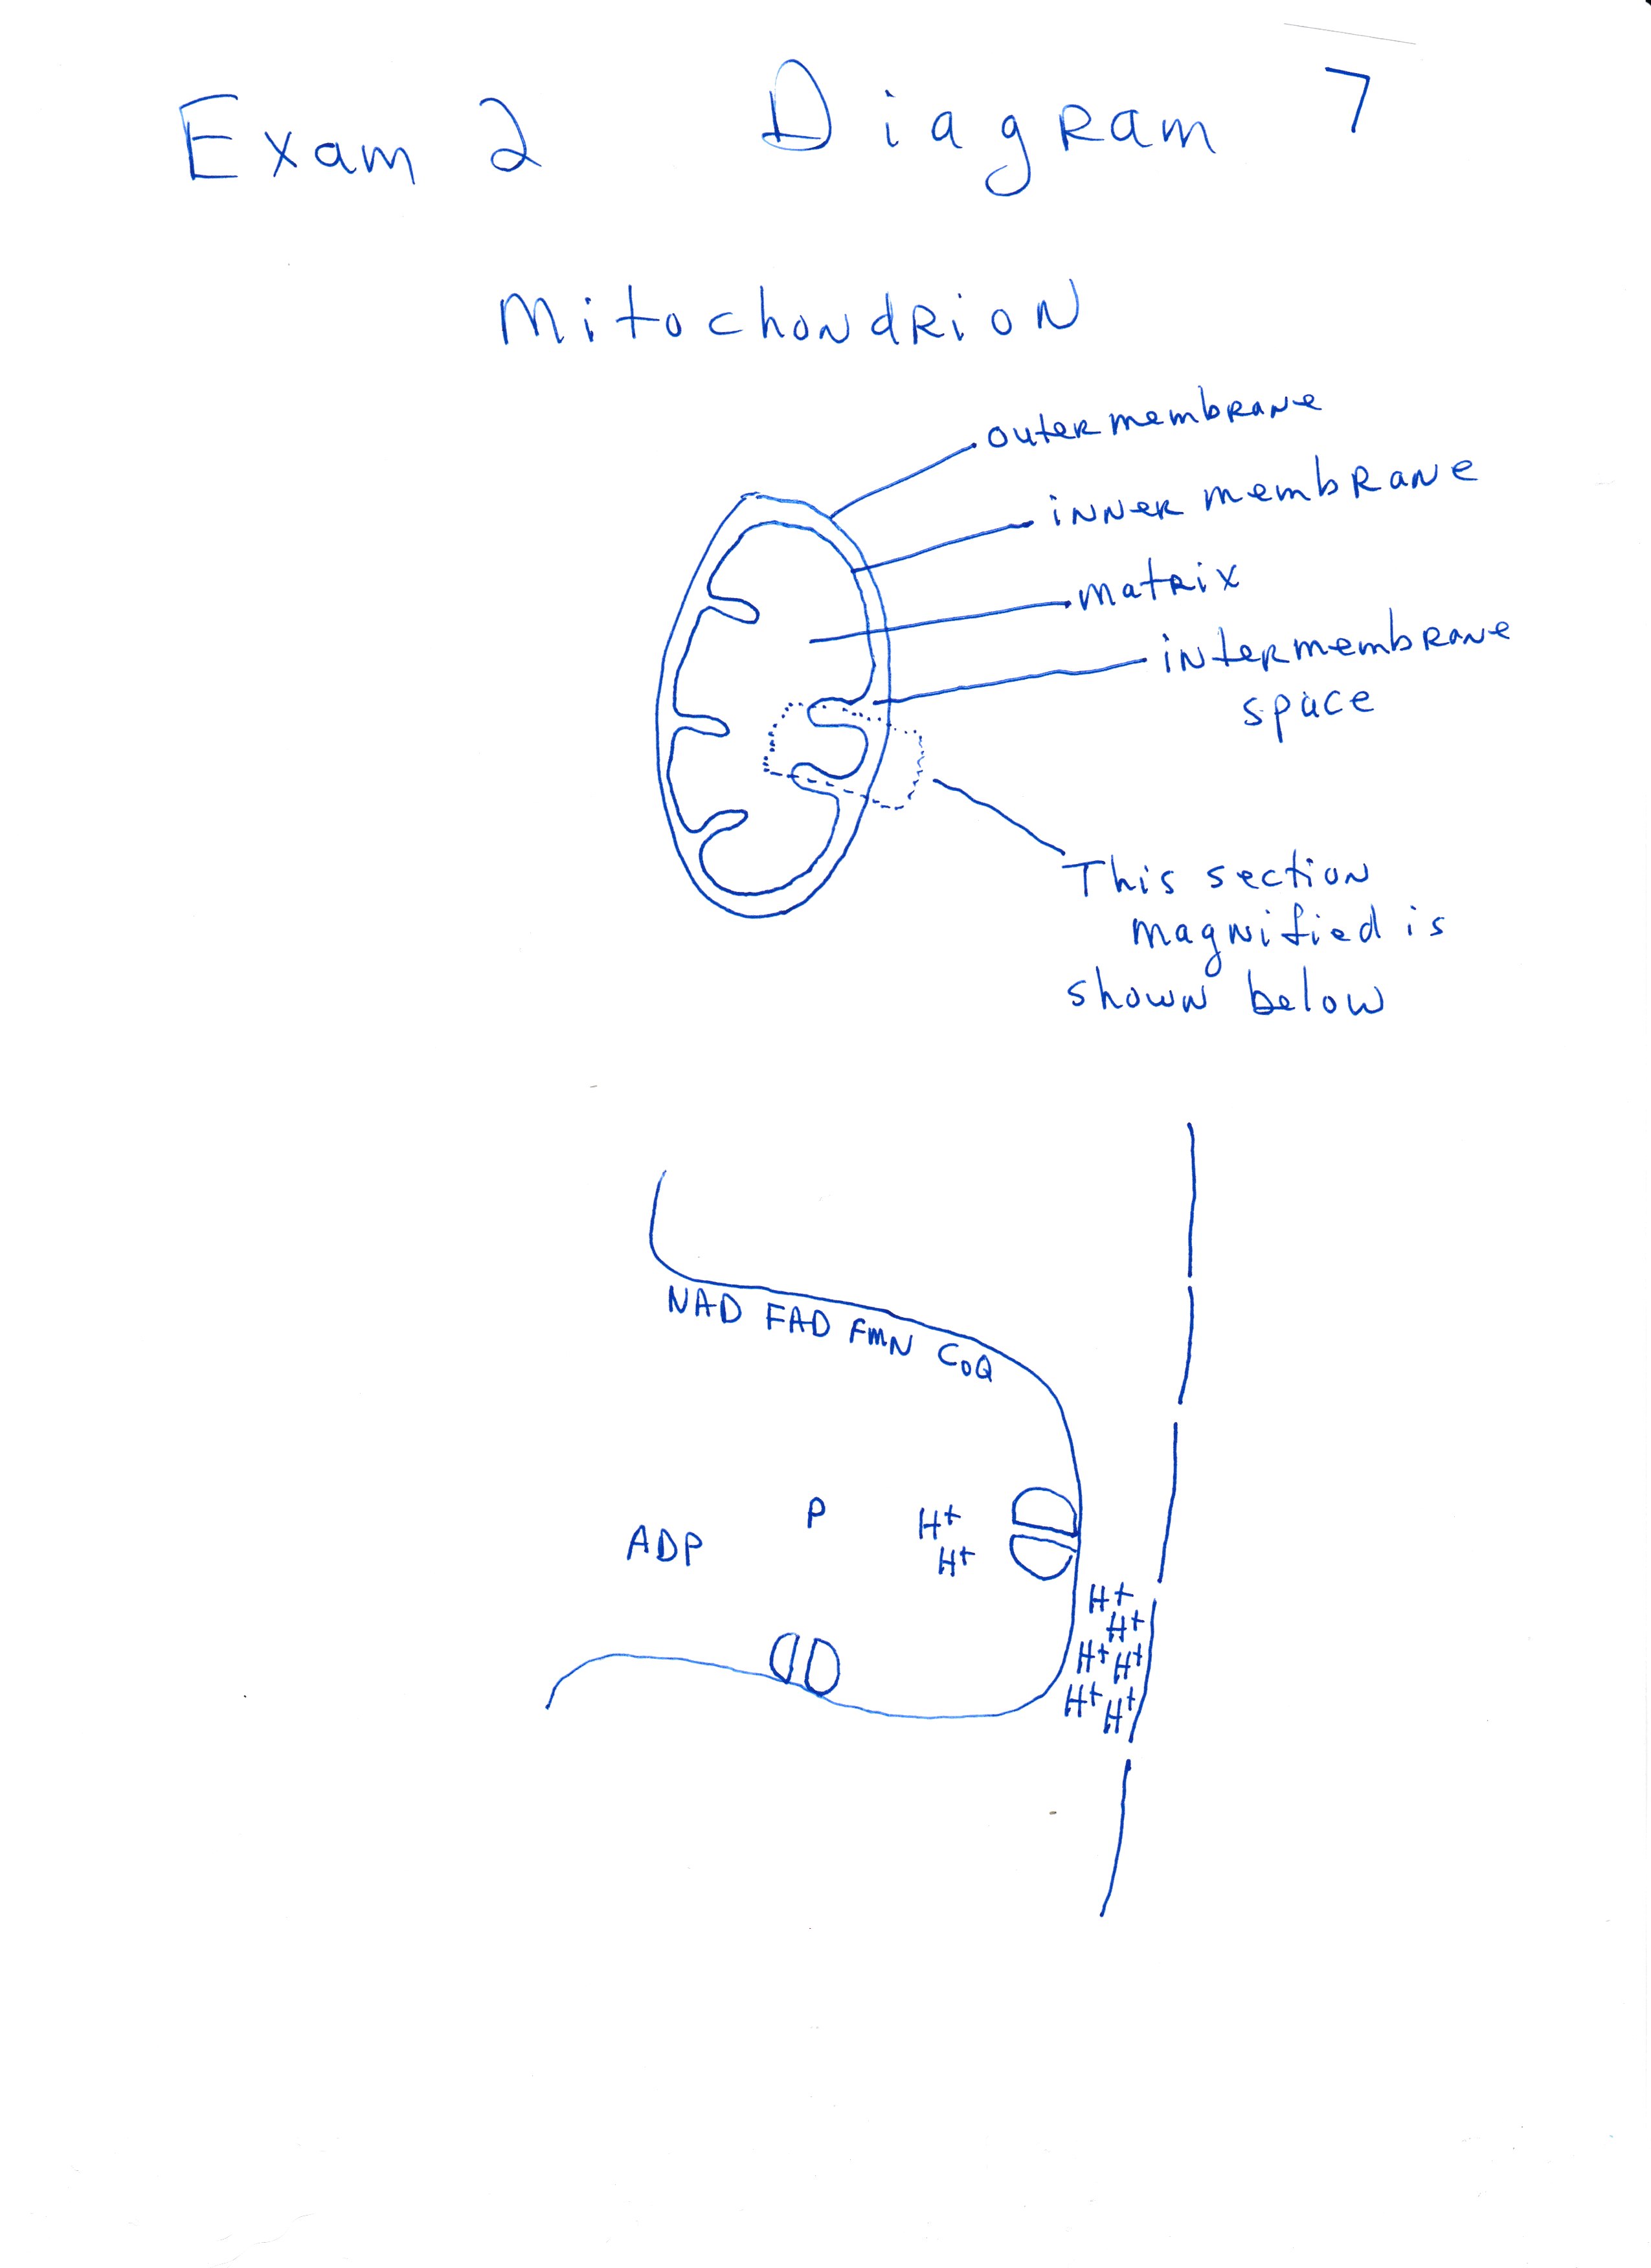 Exam 2 Diagram 7
Mitochondrion
outer membrane
inner membrane
matrix
intermembrane
space
This section
magnified is
shown below
NAD FAD FMN CoQ
ADP P H+
H+
H+
H+
H+ H+
H+ H+